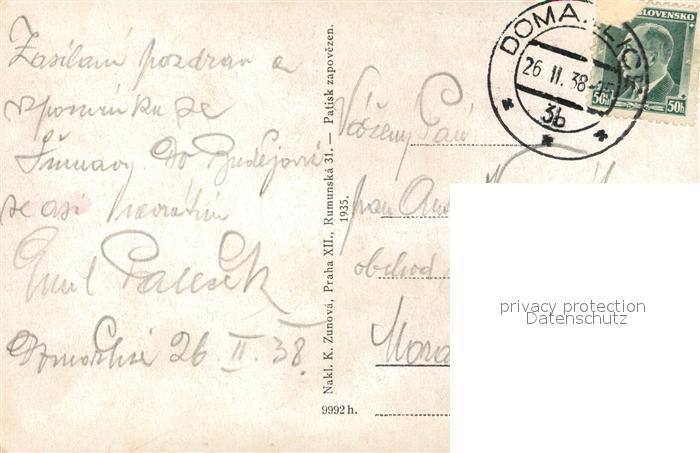 Zasílám pozdrav a
vzpomínku ze
Šumavy. Do Budějovic
se asi nevrátím
Emil
Domažlice 26. II. 38.
Nakl. K. Zunová, Praha XII., Rumunská 31. — Patisk zapovězen.
1935.
9992 h.
DOMAŽLICE
26 II. 38
3b
SLOVENSKO
50h 50h
Vážený Pán
pan
obchod
Mora
privacy protection
Datenschutz